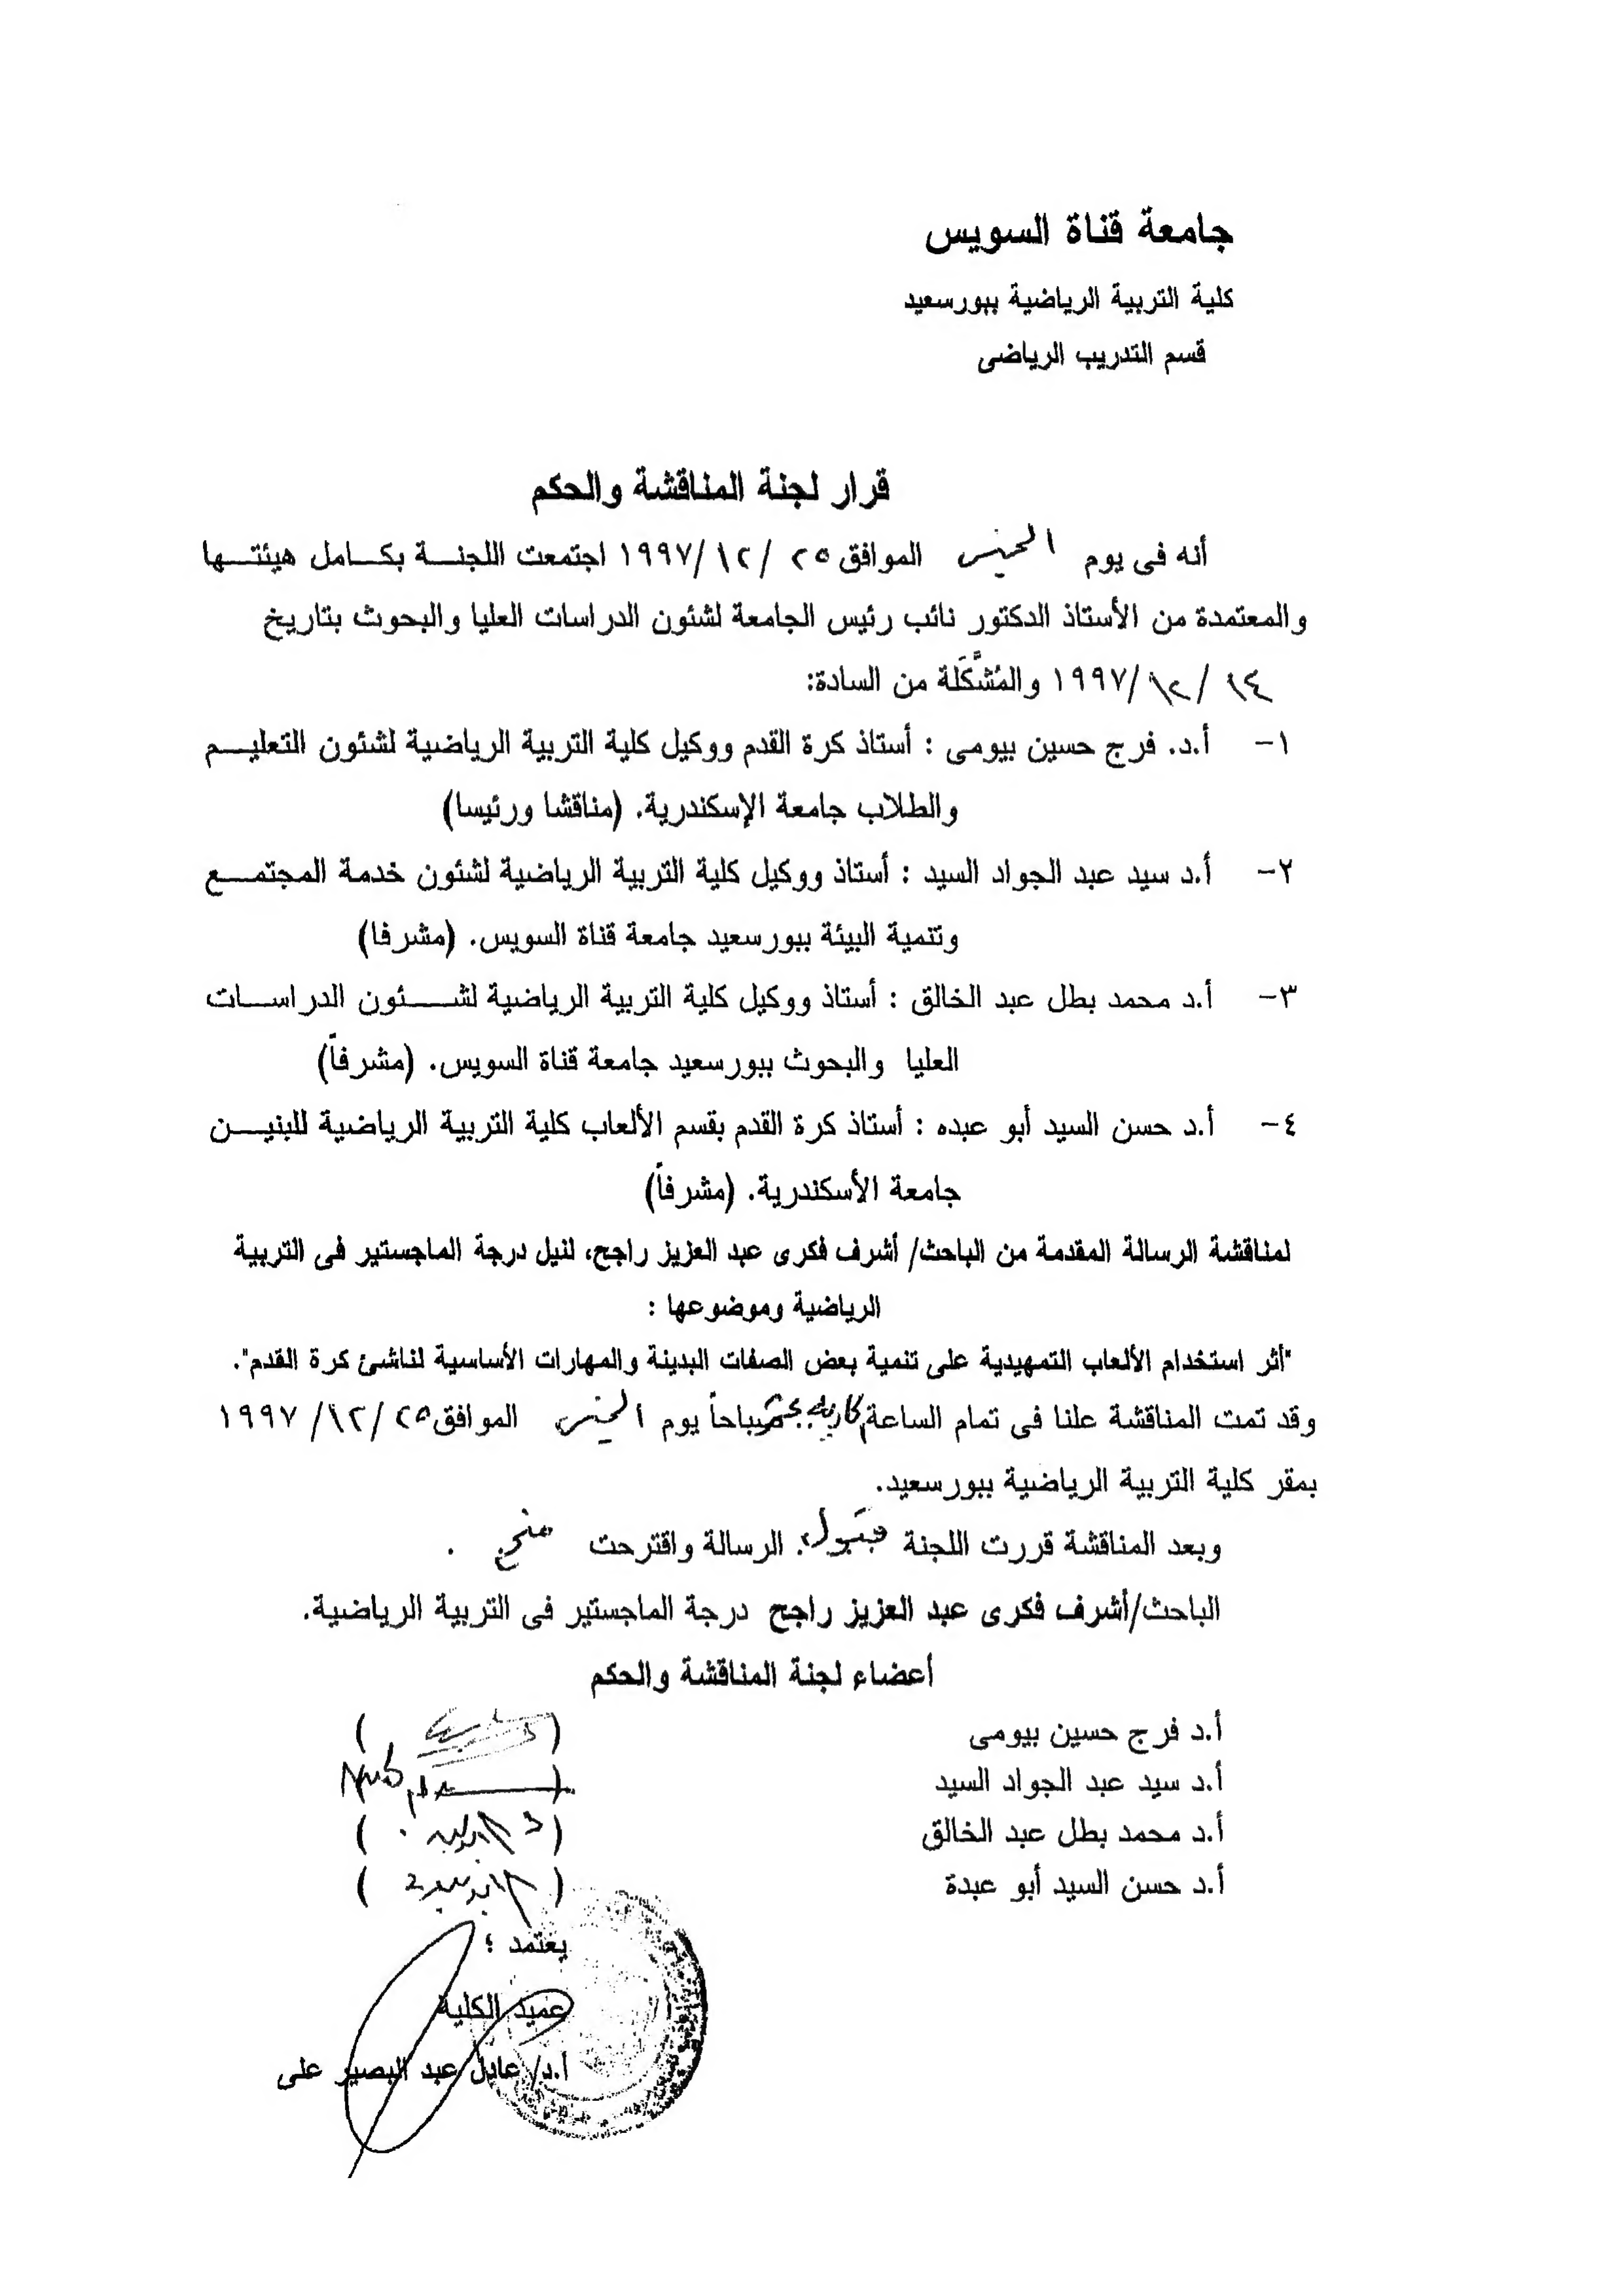 جامعة قناة السويس
كلية التربية الرياضية ببورسعيد
قسم التدريب الرياضى
قرار لجنة المناقشة والحكم
أنه فى يوم الخميس الموافق ٢٥ /١٢ /١٩٩٧ اجتمعت اللجنة بكامل هيئتها
والمعتمدة من الأستاذ الدكتور نائب رئيس الجامعة لشئون الدراسات العليا والبحوث بتاريخ
١٤ /١٢ /١٩٩٧ والمُشَّكَلة من السادة:
١- أ.د. فرج حسين بيومى : أستاذ كرة القدم ووكيل كلية التربية الرياضية لشئون التعليم
والطلاب جامعة الإسكندرية. (مناقشا ورئيسا)
٢- أ.د سيد عبد الجواد السيد : أستاذ ووكيل كلية التربية الرياضية لشئون خدمة المجتمع
وتنمية البيئة ببورسعيد جامعة قناة السويس. (مشرفا)
٣- أ.د محمد بطل عبد الخالق : أستاذ ووكيل كلية التربية الرياضية لشئون الدراسات
العليا والبحوث ببورسعيد جامعة قناة السويس. (مشرفاً)
٤- أ.د حسن السيد أبو عبده : أستاذ كرة القدم بقسم الألعاب كلية التربية الرياضية للبنين
جامعة الأسكندرية. (مشرفاً)
لمناقشة الرسالة المقدمة من الباحث/ أشرف فكرى عبد العزيز راجح، لنيل درجة الماجستير فى التربية
الرياضية وموضوعها :
"أثر استخدام الألعاب التمهيدية على تنمية بعض الصفات البدينة والمهارات الأساسية لناشئ كرة القدم".
وقد تمت المناقشة علنا فى تمام الساعة صباحاً يوم الخميس الموافق ٢٥ /١٢ /١٩٩٧
بمقر كلية التربية الرياضية ببورسعيد.
وبعد المناقشة قررت اللجنة قبول الرسالة واقترحت منح .
الباحث/أشرف فكرى عبد العزيز راجح درجة الماجستير فى التربية الرياضية.
أعضاء لجنة المناقشة والحكم
أ.د فرج حسين بيومى ( )
أ.د سيد عبد الجواد السيد ( )
أ.د محمد بطل عبد الخالق ( )
أ.د حسن السيد أبو عبدة ( )
يعتمد ؛
عميد الكلية
أ.د/ عادل عبد البصير على